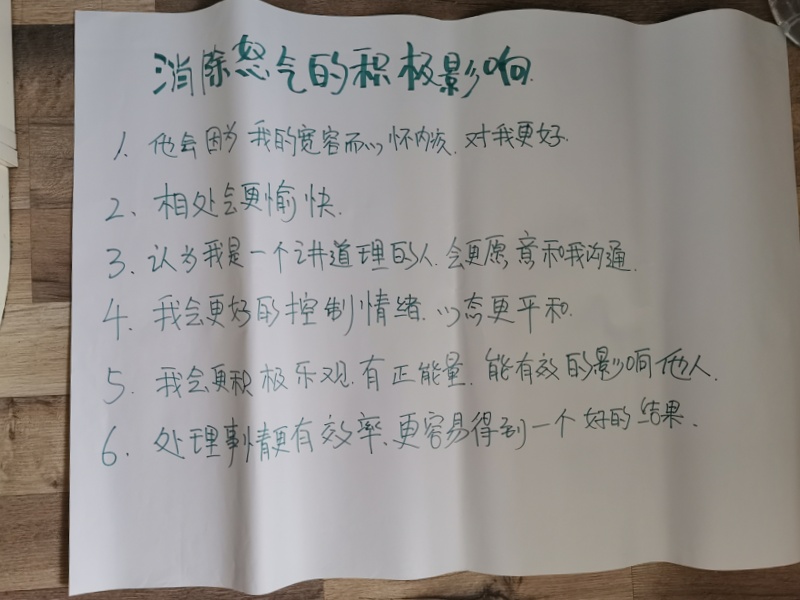 消除怒气的积极影响.
1. 他会因为我的宽容而心怀内疚.对我更好.
2、相处会更愉快.
3、认为我是一个讲道理的人.会更愿意和我沟通.
4、我会更好的控制情绪.心态更平和.
5、我会更积极乐观.有正能量.能有效的影响他人.
6、处理事情更有效率、更容易得到一个好的结果.